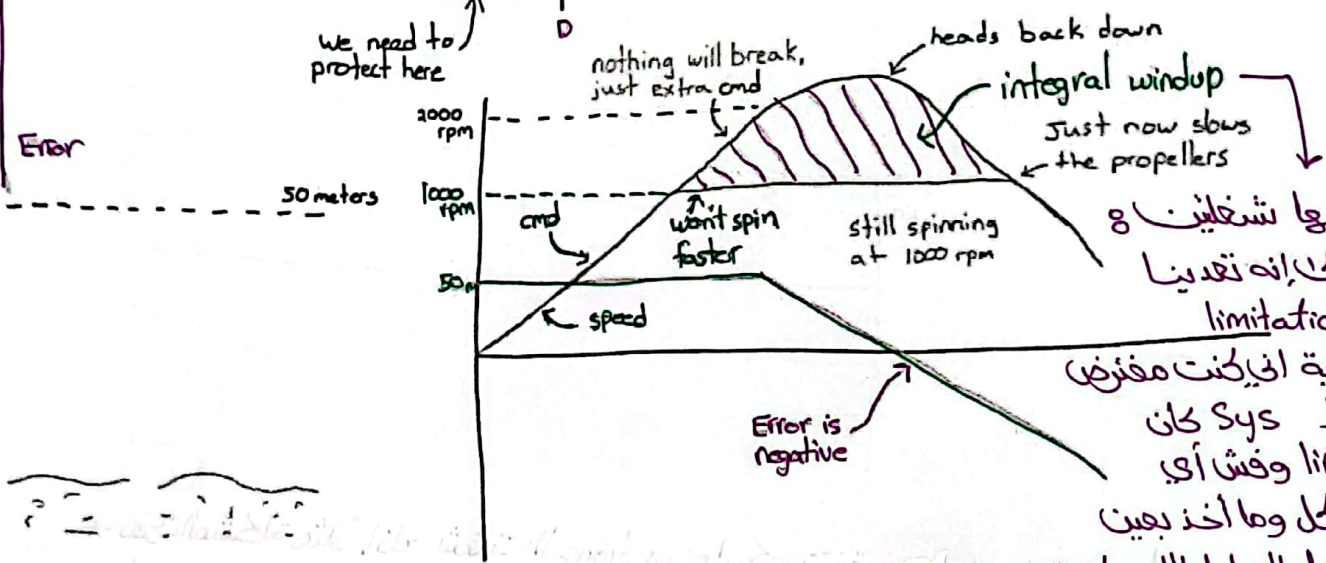 we need to
protect here
D
nothing will break,
just extra cmd
heads back down
integral windup
Just now slows
the propellers
2000
rpm
Error
50 meters
1000
rpm
cmd
won't spin
faster
still spinning
at 1000 rpm
50m
speed
Error is
negative
شغلتين
إنه تعدينا
limitatio
كنت مفترض
sys كان
وفش أي
وما أخذ بعين